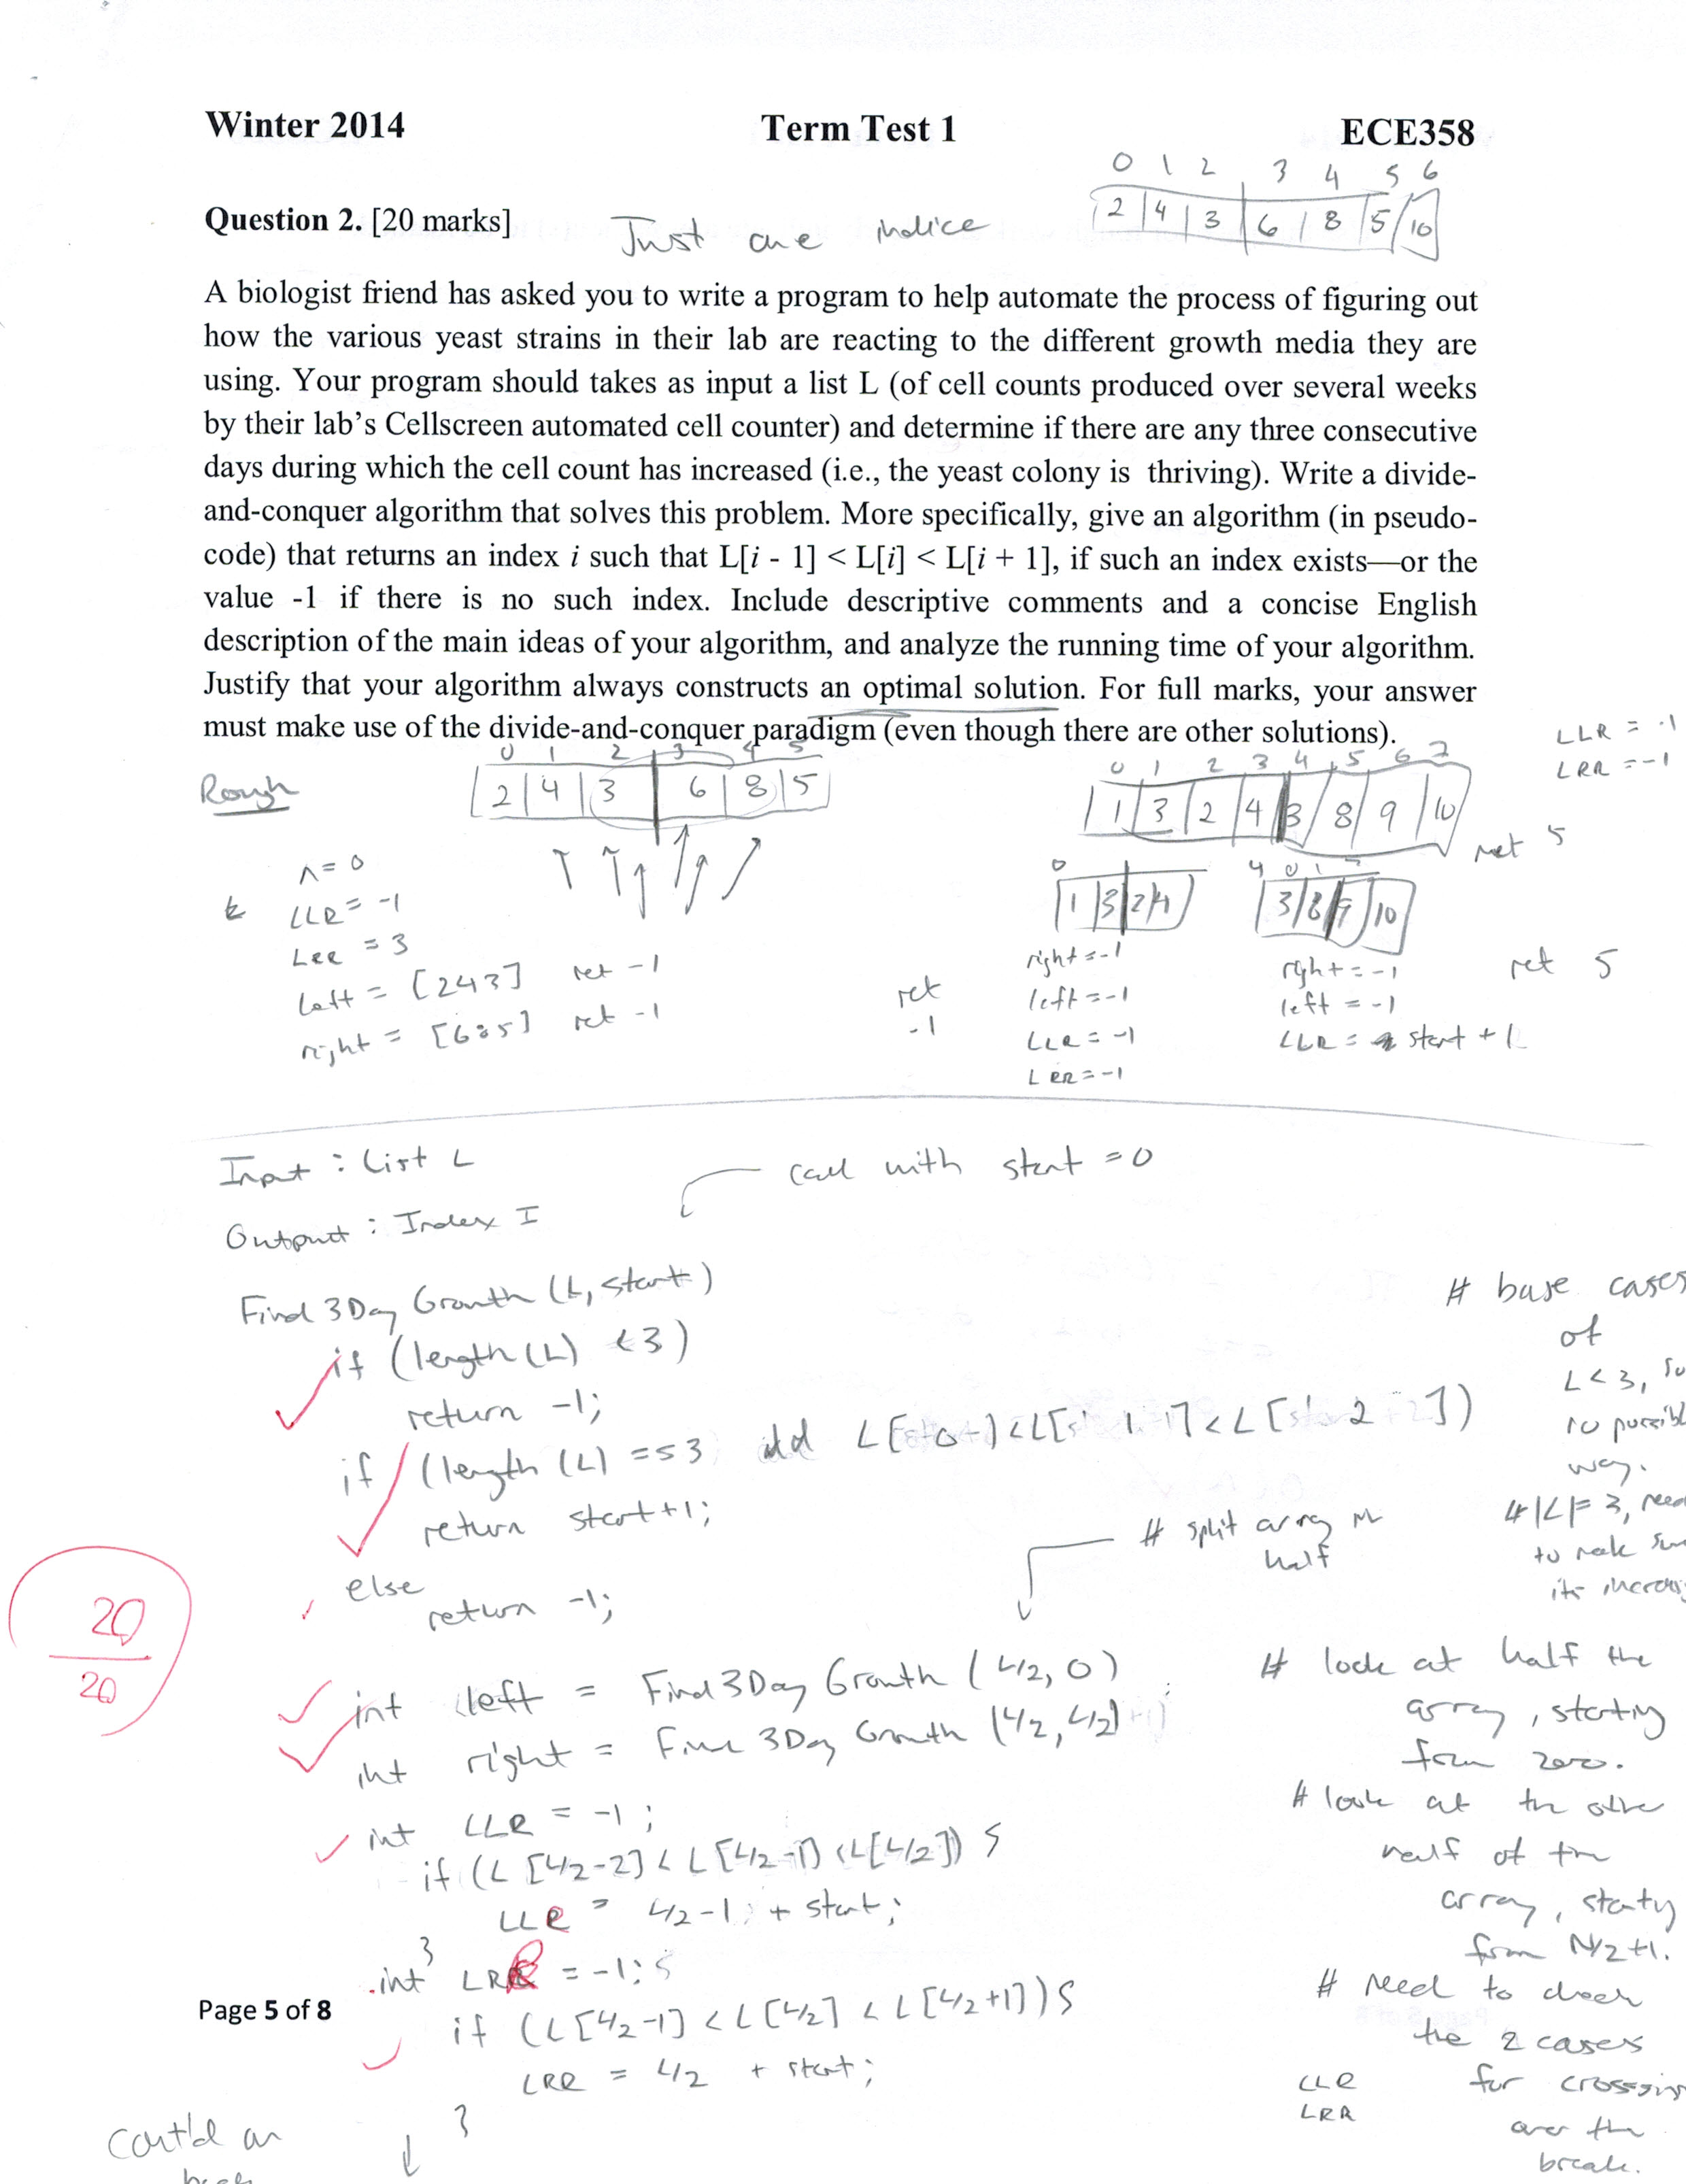 Winter 2014 Term Test 1 ECE358
0 1 2 3 4 5 6
Question 2. [20 marks] Just one indice 2 4 3 6 8 5 10
A biologist friend has asked you to write a program to help automate the process of figuring out
how the various yeast strains in their lab are reacting to the different growth media they are
using. Your program should takes as input a list L (of cell counts produced over several weeks
by their lab's Cellscreen automated cell counter) and determine if there are any three consecutive
days during which the cell count has increased (i.e., the yeast colony is thriving). Write a divide-
and-conquer algorithm that solves this problem. More specifically, give an algorithm (in pseudo-
code) that returns an index i such that L[i - 1] < L[i] < L[i + 1], if such an index exists—or the
value -1 if there is no such index. Include descriptive comments and a concise English
description of the main ideas of your algorithm, and analyze the running time of your algorithm.
Justify that your algorithm always constructs an optimal solution. For full marks, your answer
must make use of the divide-and-conquer paradigm (even though there are other solutions).
LLR = -1
LRR = -1
Rough
0 1 2 3 4 5
2 4 3 6 8 5
0 1 2 3 4 5 6 7
1 3 2 4 3 8 9 10
ret 5
n = 0
LLR = -1
LRR = 3
left = [243] ret -1
right = [685] ret -1
0
1 3 2 4
right = -1
left = -1
LLR = -1
LRR = -1
ret
-1
4 0 1
3 8 9 10
right = -1
left = -1
LLR = start + 1
ret 5
Input : List L
call with start = 0
Output : Index I
Find 3 Day Growth (L, start)
if (length (L) < 3)
return -1;
if (length (L) == 3 L[0] < L[1] < L[2])
return start+1;
else
return -1;
# base cases
of
L < 3, so
no possibl
way.
# |L| = 3, need
to make sure
its increas
# split array in
half
20
20
int left = Find 3 Day Growth (L/2, 0)
int right = Find 3 Day Growth (L/2, L/2)
int LLR = -1;
if (L [L/2-2] < L [L/2-1] < L[L/2]) {
LLR = L/2-1 + start;
}
int LRR = -1;
if (L [L/2-1] < L [L/2] < L [L/2+1]) {
LRR = L/2 + start;
}
# look at half the
array, starting
from zero.
# look at the other
half of the
array, starting
from N/2+1.
# need to check
the 2 cases
LLR for crossing
LRR over the
break.
Page 5 of 8
Cont'd on